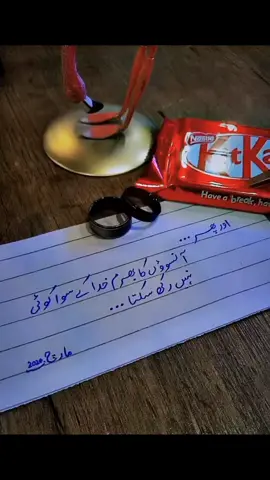 Nestlé
KitKa
Have a break, ha
اور پھر ...
آنسوؤں کا بھرم خدا کے سوا کوئی
نہیں رکھ سکتا ...